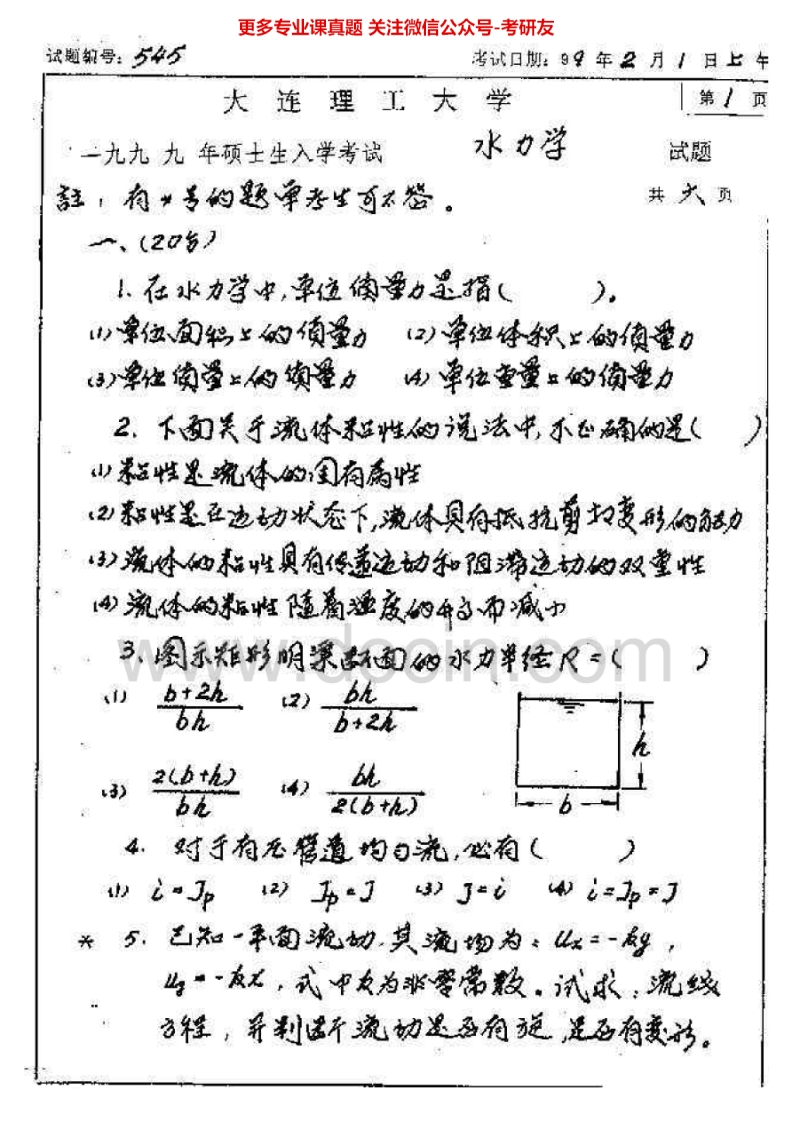 更多专业课真题 关注微信公众号-考研友
试题编号: 545 考试日期: 99年2月1日上午
大连理工大学 第1页
一九九九年硕士生入学考试 水力学 试题
註：有*号的题单考生可不答。 共六页
一、(20分)
1. 在水力学中,单位质量力是指( )。
(1)单位面积上的质量力 (2)单位体积上的质量力
(3)单位质量上的质量力 (4)单位重量上的质量力
2. 下面关于流体粘性的说法中,不正确的是( )
(1)粘性是流体的固有属性
(2)粘性是在运动状态下,流体具有抵抗剪切变形的能力
(3)流体的粘性具有传递运动和阻滞运动的双重性
(4)流体的粘性随着温度的升高而减少
www.docin.com
3. 图示矩形明渠断面的水力半径R=( )
(1) b+2h/bh (2) bh/b+2h
(3) 2(b+h)/bh (4) bh/2(b+h)
h
b
4. 对于有压管道均匀流,必有( )
(1) i=Jp (2) Jp=J (3) J=i (4) i=Jp=J
* 5. 已知一平面流动,其流场为: ux=-ky,
uy=-kx, 式中k为非零常数。试求: 流线
方程, 并判断流动是否有旋,是否有变形。